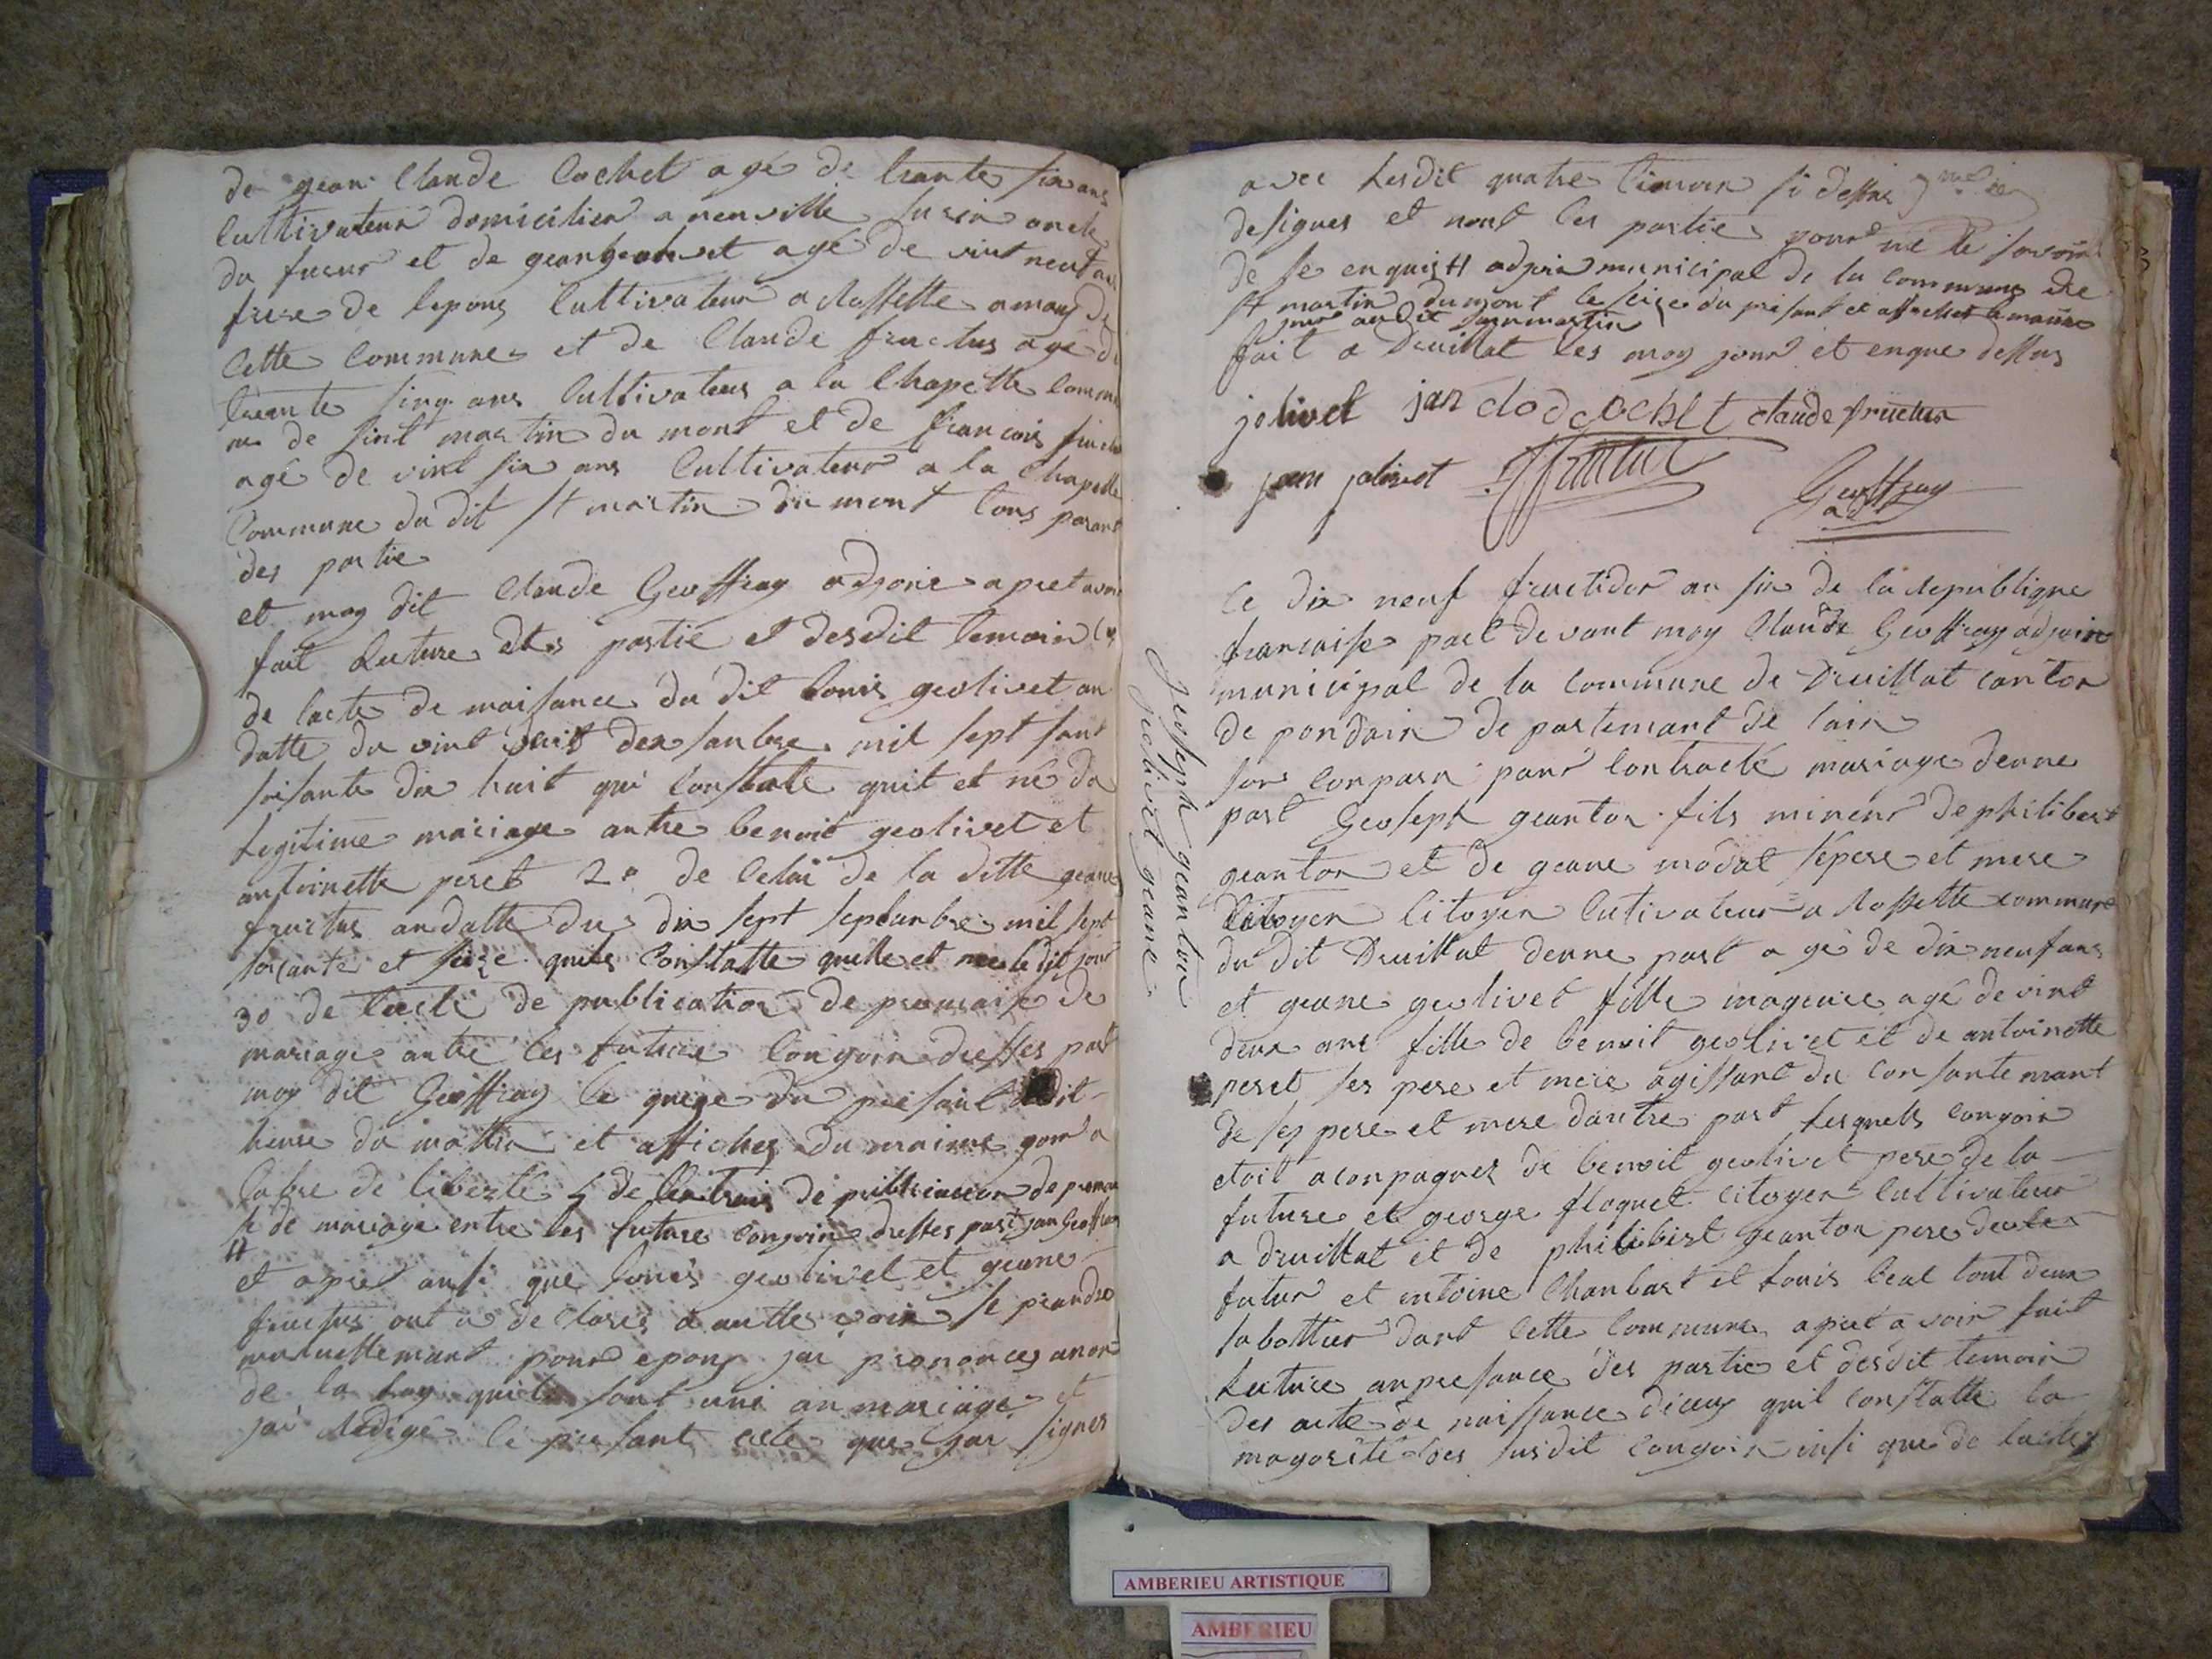 de gean Claude Cochet agé de trante six ans
Cultivateur domicilier a neuville sur ain oncle
du fucur et de gean geolivet agé de vint neuf ans
frere de lepoux Cultivateur a Rossette amaux de
Cette Commune et de Claude fructus agé de
trante sinq ans Cultivateur a la Chapelle Commu
ne de sint martin du mont et de francois fructus
agé de vint six ans Cultivateur a la Chapelle
Commune du dit st martin du mont tous parant
des partie
et moy dit Claude Geoffray adjoint apret avoir
fait Lecture des partie et desdit temoin
de lacte de naissance du dit Louis geolivet an
datte du vint huit dexsanbre mil sept sant
soisante dix huit qui Constate quil et né du
Legitime mariage antre benoit geolivet et
antoinette peret 2o de Celui de la ditte geane
fructus an datte du dix sept septanbre mil sept
soiçante et seize quils Constatte quelle et née ledit jour
3o de lacte de publication de promaise de
mariage antre les future Congoin dresses part
moy dit Geoffray le quinze du presant dit
heure du mattin et affiches du maime jour a
labre de liberté 4 de lextrais de publication de promai
se de mariage entre les future Congoin dresses part jan Geoffray
et apret ansi que Louis geolivet et geane
fructus ont a declares a autte voix se prandre
mutuellemant pour epoux jai prononces anon
de la Loy quils sont uni an mariage et
jai Redigé le presant acte que jai signes
avec Lesdit quatre temoin si dessus
desigues et nont les partie pour ne le savoir
de se enquis H adjoin municipal de la commune de
st martin du mont le seize du presant et affiches le maime
jour audit sanmartin
fait a Druillat les moy jour et enque dessus
jolivet jan clodcochet claude fructus
jean jolivet fructus Geoffray
adj
Geoseph geanton
geolivet geane
le dix neuf fructidor an six de la Republique
francaise part devant moy Claude Geoffray adjoin
municipal de la commune de Druillat canton
de pondain departemant de lain
son Conparu pour Contracté mariage denne
part Geosept geanton fils mineur de philibert
geanton et de geane modat sepere et mere
Citoyen Citoyen Cutivateur a Rossette commune
du dit Druillat denne part agé de dix neuf ans
et geane geolivet fille mageure agé de vint
deux ans fille de benoit geolivet et de antoinette
peret ses pere et mere agissant du Consantemant
de ses pere et mere dautre part Lesquels Congoin
etoit aconpagnes de benoit geolivet pere de la
future et george floquet Citoyen Cultivateur
a druillat et de philibert geanton pere deu
futur et entoine Chanbart et Louis beat tout deux
sabottier dant Cette Commune apret avoir fait
Lecture anpresance des partie et desdit temoin
des acte de naissance diceux quil Constatte la
mayorité des susdit Congoin insi que de lactes
AMBERIEU ARTISTIQUE
AMBERIEU